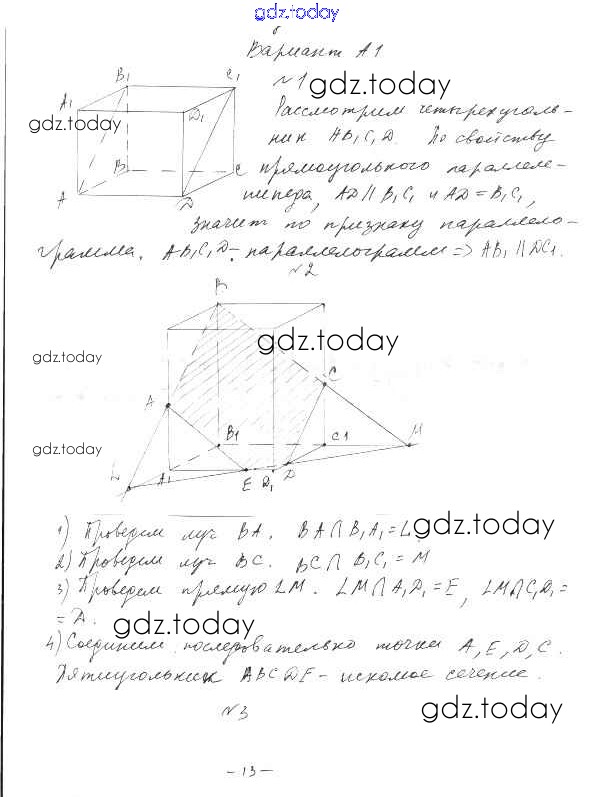 gdz.today
Вариант А1
№1
gdz.today
Рассмотрим четырехуголь-
B₁
C₁
A₁
D₁
gdz.today
ник AB₁C₁D. По свойству
B
C
прямоугольного параллеле-
A
D
пипеда, AD∥B₁C₁ и AD=B₁C₁,
значит по признаку параллело-
грамма. AB₁C₁D - параллелограмм => AB₁∥DC₁.
№2
B
gdz.today
gdz.today
C
A
gdz.today
B₁
C₁
M
L
A₁
E
D₁
D
1) Проведем луч BA. BA∩B₁A₁=L
gdz.today
2) Проведем луч BC. BC∩B₁C₁=M
3) Проведем прямую LM. LM∩A₁D₁=E, LM∩C₁D₁=
=D.
gdz.today
4) Соединим последовательно точки A, E, D, C.
Пятиугольник ABCDE - искомое сечение.
№3
gdz.today
-13-